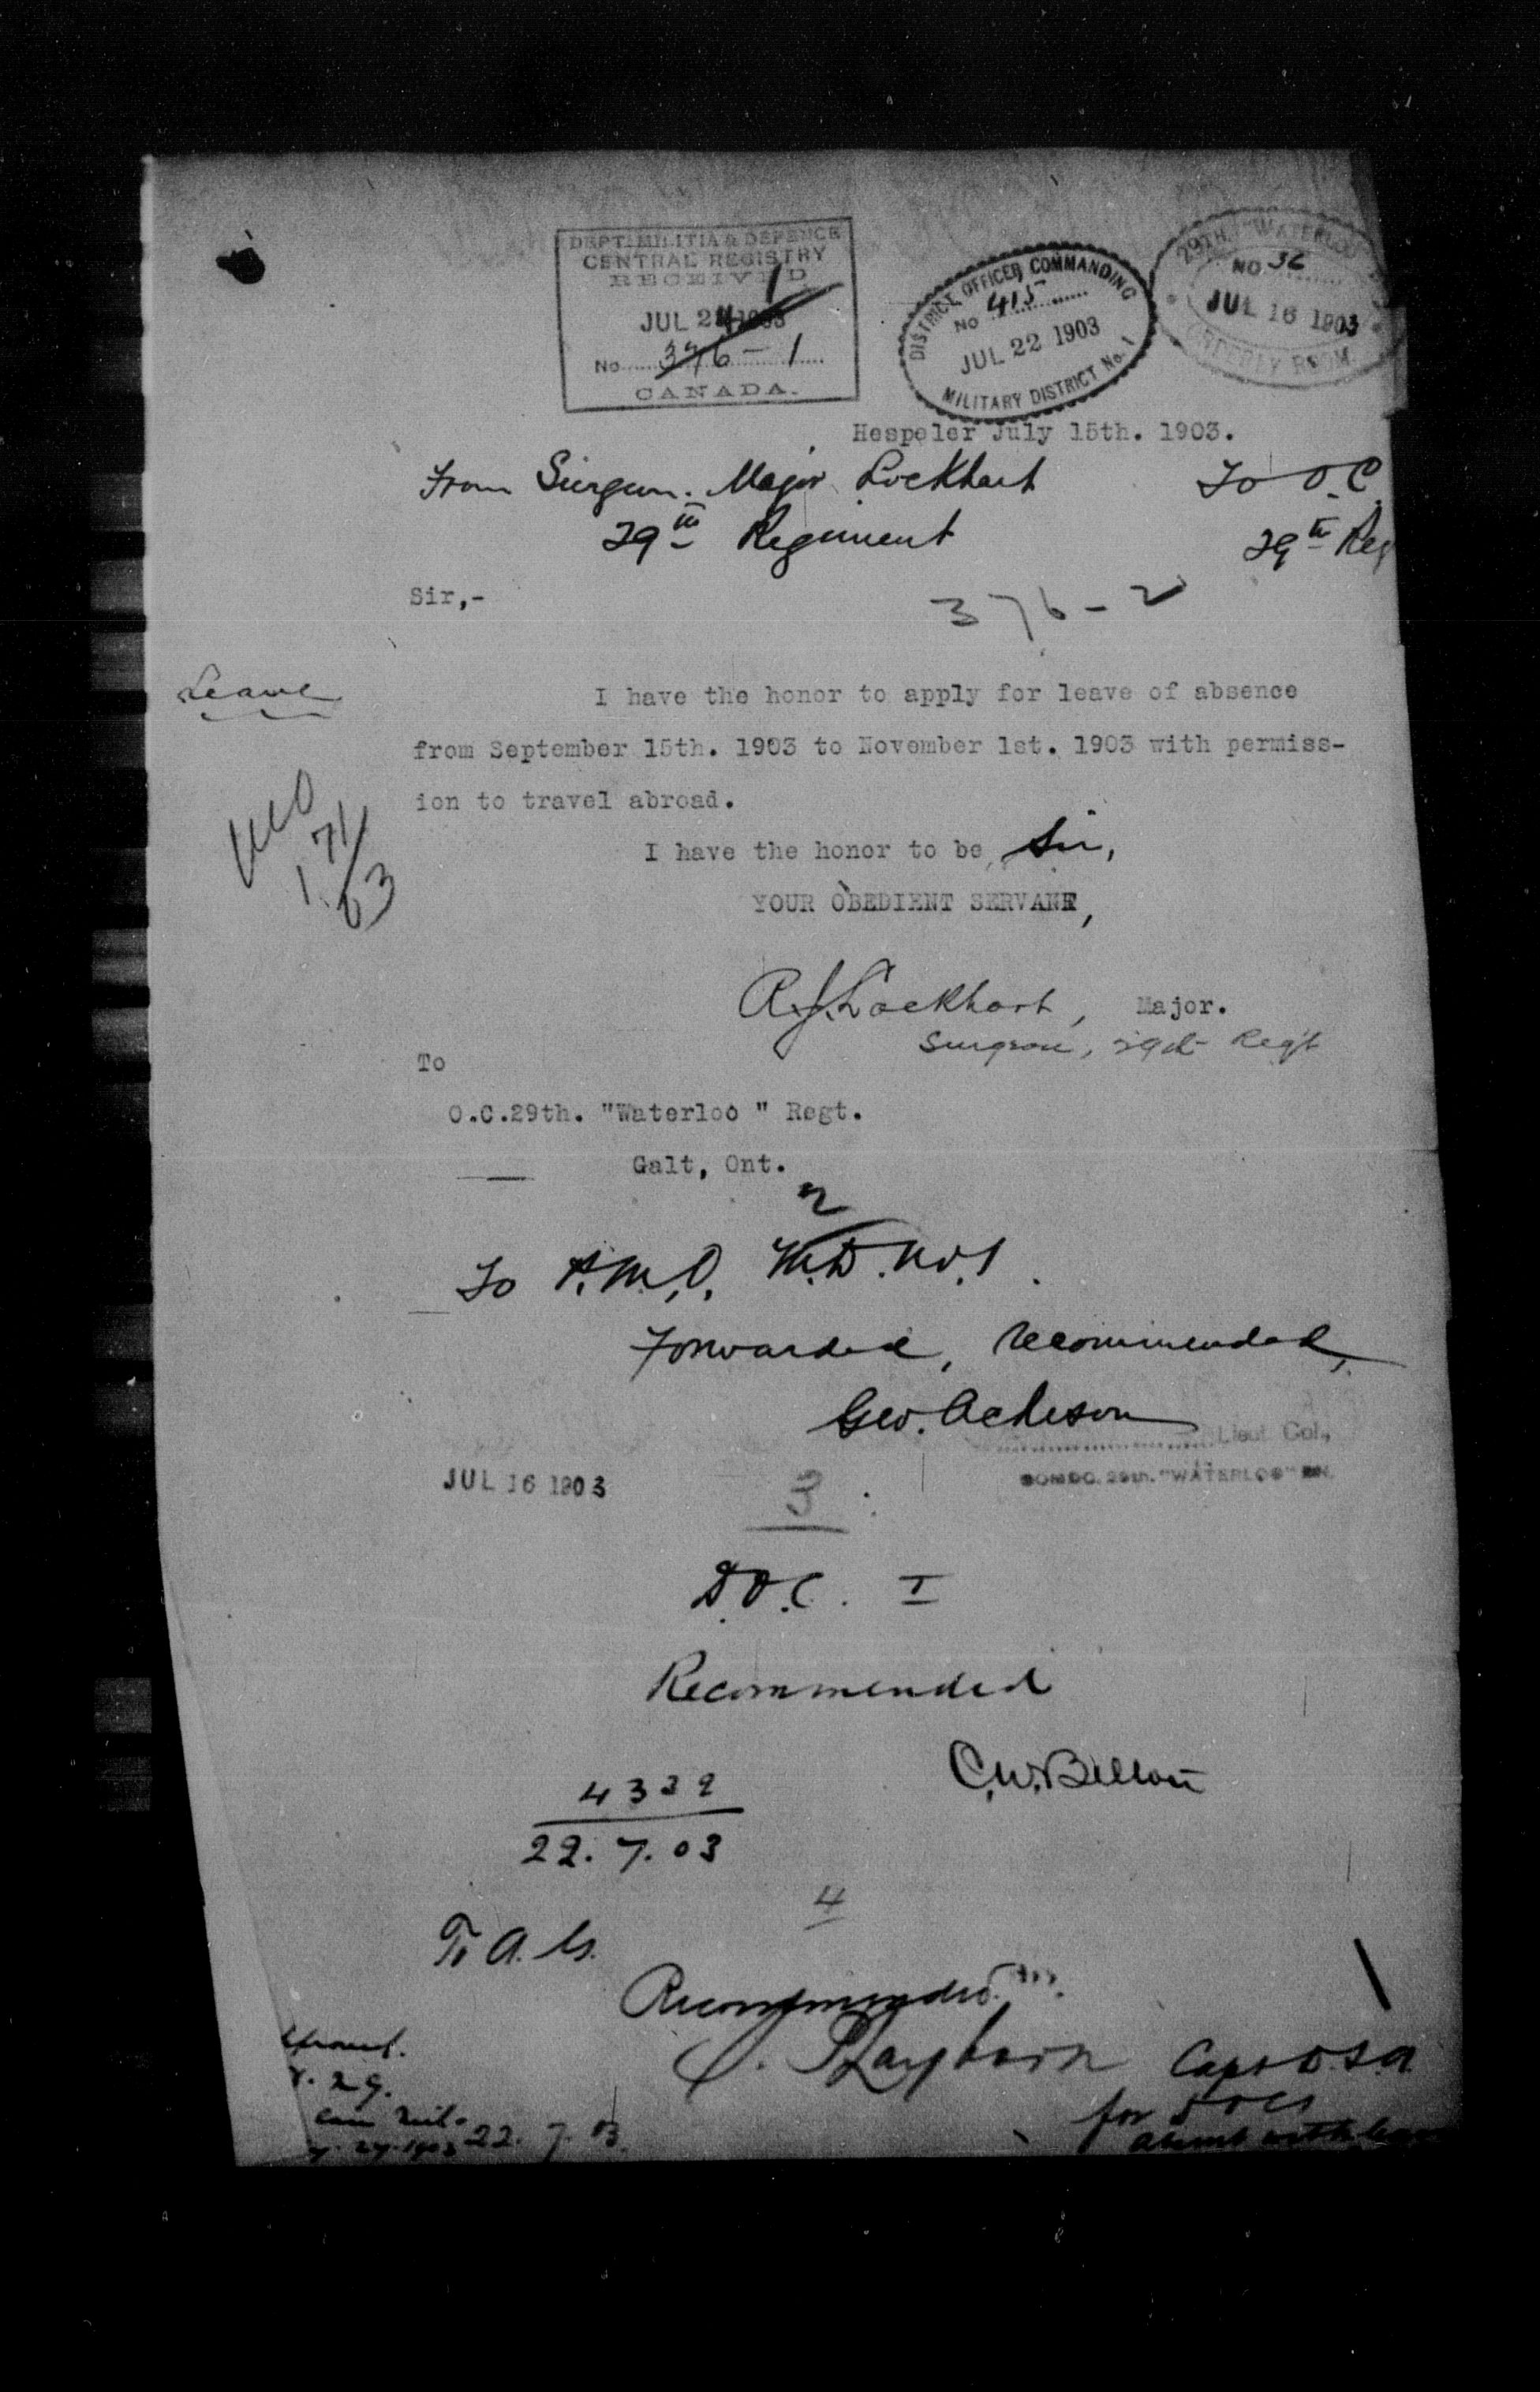 DEPT. MILITIA & DEFENCE
CENTRAL REGISTRY
RECEIVED
JUL 24 1903
No 376-1
CANADA.
DISTRICT OFFICER COMMANDING
No 415
JUL 22 1903
MILITARY DISTRICT No. 1
29TH. "WATERLOO"
NO 36
JUL 16 1903
ORDERLY ROOM
Hespeler July 15th. 1903.
From Surgeon. Major Lockhart To O.C.
29th Regiment 29th Reg
Sir,-
376-2
Leave
I have the honor to apply for leave of absence
from September 15th. 1903 to November 1st. 1903 with permiss-
ion to travel abroad.
I have the honor to be, Sir,
YOUR OBEDIENT SERVANT,
R.J. Lockhart, Major.
Surgeon, 29th Reg't
To
O.C.29th. "Waterloo " Regt.
Galt, Ont.
2
To P.M.O. M.D. No. 1.
Forwarded, recommended,
Geo. Acheson
Lieut Col.,
COMDG. 29th. "WATERLOO" BN.
JUL 16 1903
3
D.O.C. I
Recommended
C.W. Belton
4339
22.7.03
4
To A.G.
Recommended.
Capt
for DOC 1
absent with leave
22.7.03